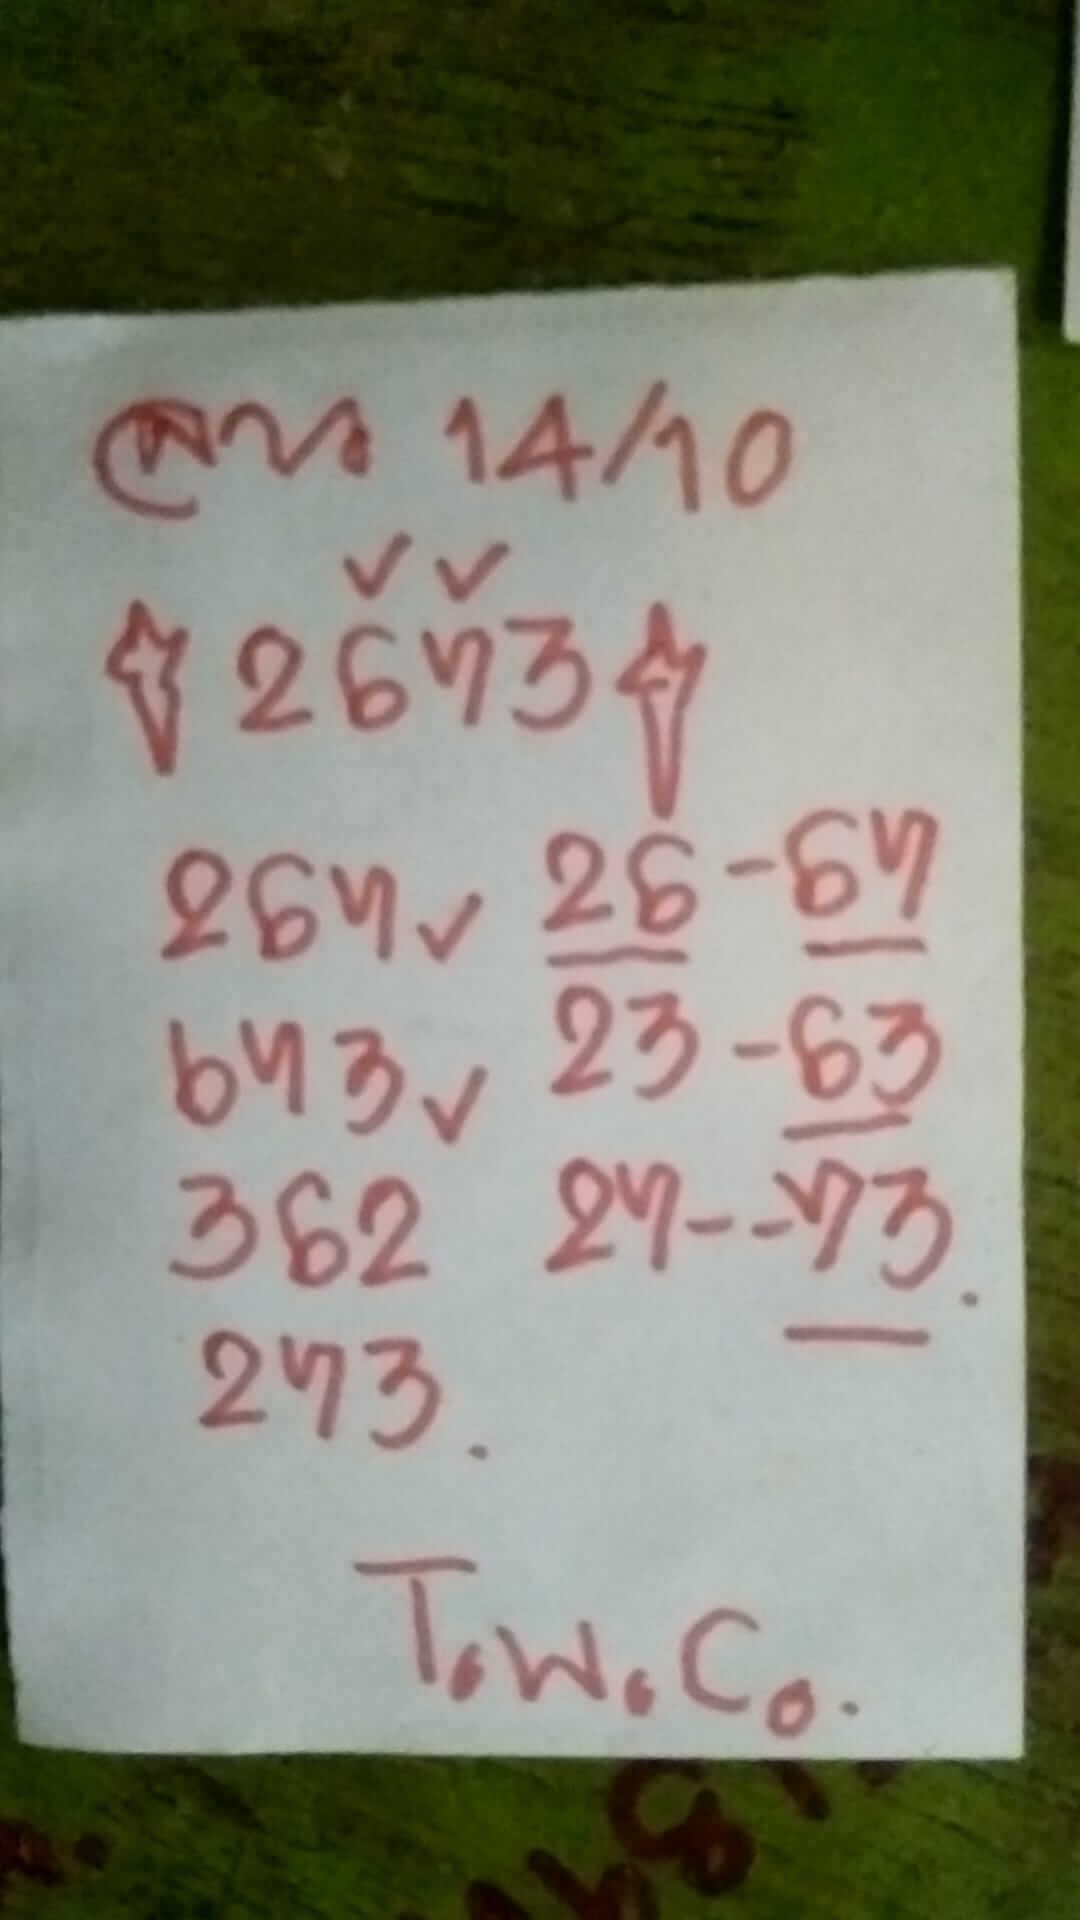 ลาว 14/10
✓✓
2673
267✓ 26-67
673✓ 23-63
362 27--73.
273.
T.W.C.